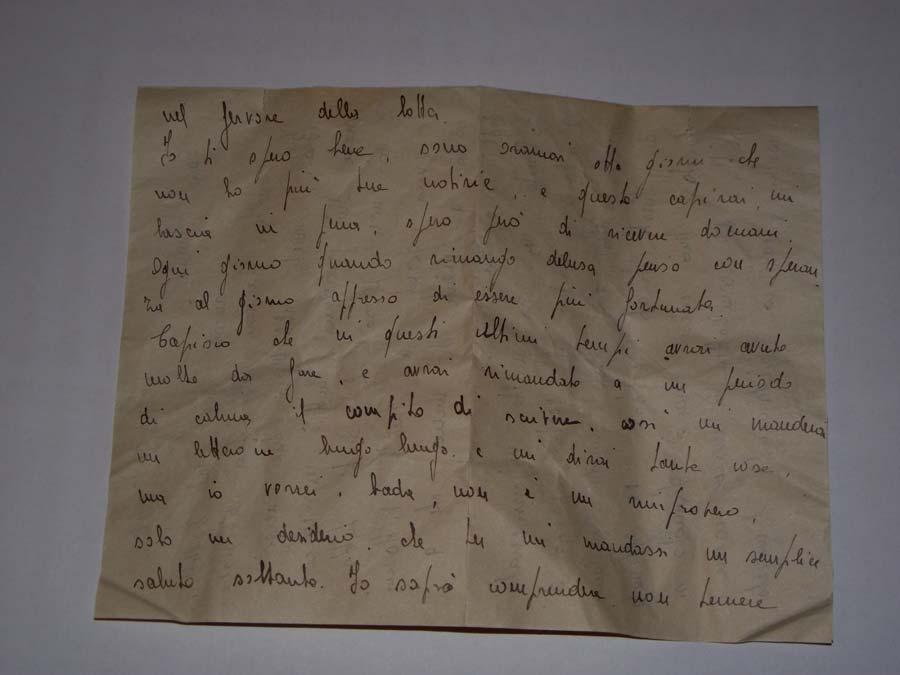 nel fervore della lotta.
Io ti spero bene, sono oramai otto giorni che
non ho più tue notizie, e questo capirai, mi
lascia in pena, spero però di riceverne domani.
Ogni giorno quando rimango delusa penso con speran
za al giorno appresso di essere più fortunata.
Capisco che in questi ultimi tempi avrai avuto
molto da fare, e avrai rimandato a un periodo
di calma il compito di scrivere, così mi manderai
un letterone lungo lungo e mi dirai tante cose,
ma io vorrei, bada, non è un rimprovero,
solo un desiderio, che tu mi mandassi un semplice
saluto soltanto. Io saprò comprendere non temere